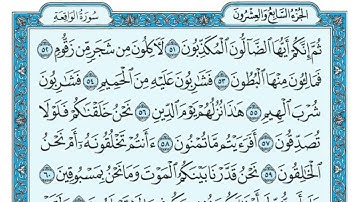 الجُزْءُ السَّابِعُ وَالعِشْرُونَ سُورَةُ الوَاقِعَةِ
ثُمَّ إِنَّكُمْ أَيُّهَا ٱلضَّآلُّونَ ٱلْمُكَذِّبُونَ ٥١ لَـَٔاكِلُونَ مِن شَجَرٍ مِّن زَقُّومٍ ٥٢
فَمَالِـُٔونَ مِنْهَا ٱلْبُطُونَ ٥٣ فَشَٰرِبُونَ عَلَيْهِ مِنَ ٱلْحَمِيمِ ٥٤ فَشَٰرِبُونَ
شُرْبَ ٱلْهِيمِ ٥٥ هَٰذَا نُزُلُهُمْ يَوْمَ ٱلدِّينِ ٥٦ نَحْنُ خَلَقْنَٰكُمْ فَلَوْلَا
تُصَدِّقُونَ ٥٧ أَفَرَءَيْتُم مَّا تُمْنُونَ ٥٨ ءَأَنتُمْ تَخْلُقُونَهُۥٓ أَمْ نَحْنُ
ٱلْخَٰلِقُونَ ٥٩ نَحْنُ قَدَّرْنَا بَيْنَكُمُ ٱلْمَوْتَ وَمَا نَحْنُ بِمَسْبُوقِينَ ٦٠